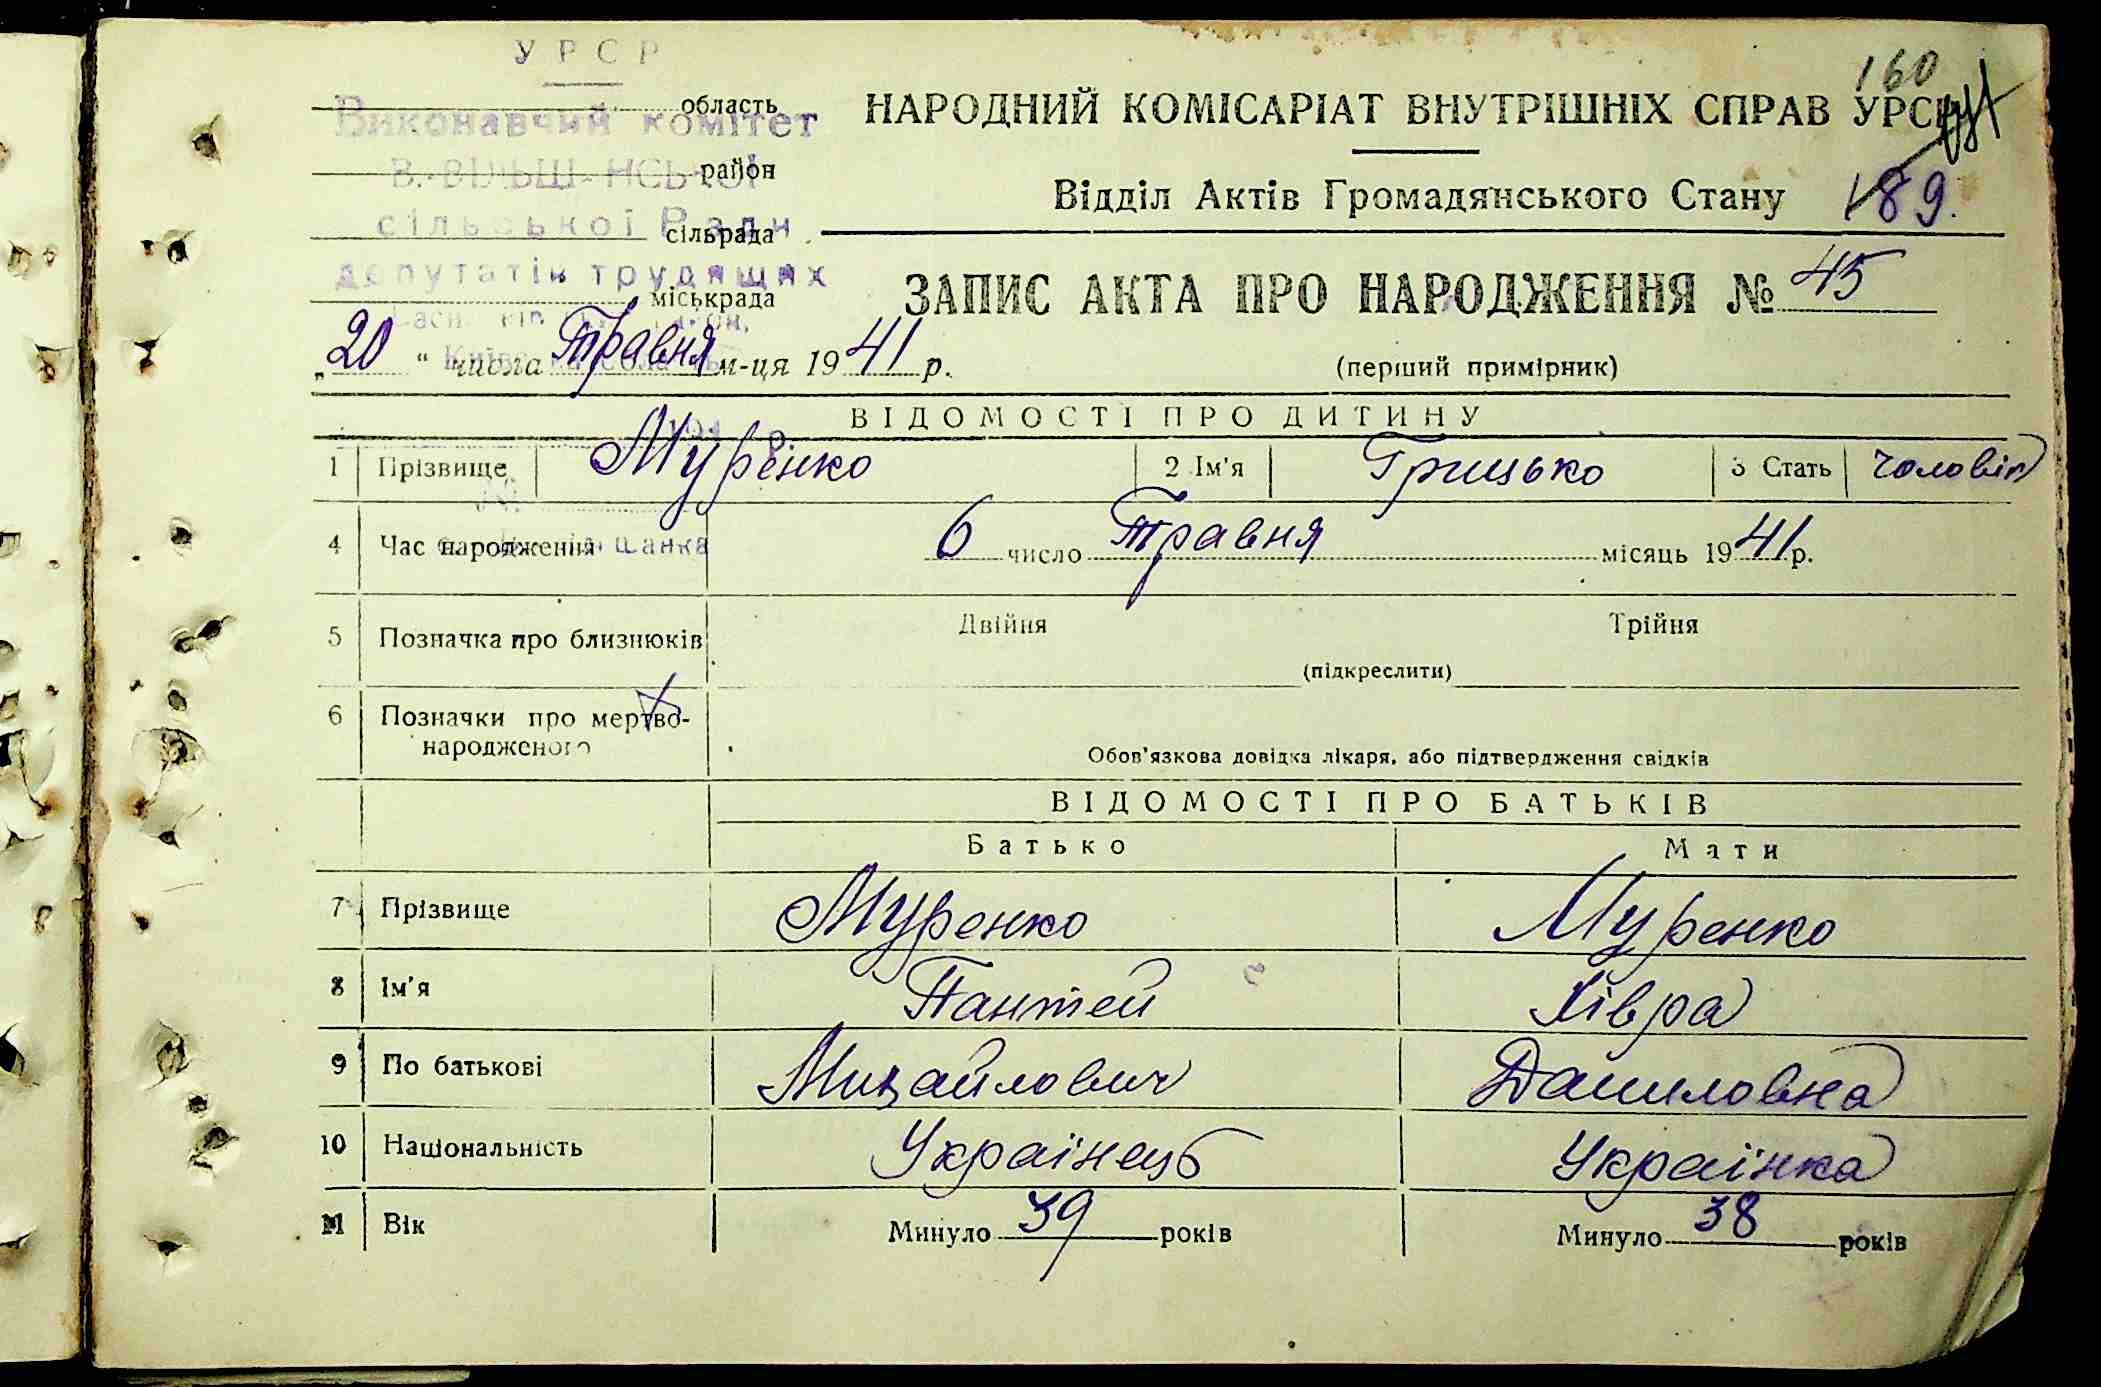 УРСР
область
Виконавчий комітет
район
сільської Ради
сільрада
депутатів трудящих
міськрада
160
НАРОДНИЙ КОМІСАРІАТ ВНУТРІШНІХ СПРАВ УРСР
Відділ Актів Громадянського Стану 189.
ЗАПИС АКТА ПРО НАРОДЖЕННЯ № 45
(перший примірник)
„20“ числа Травня м-ця 1941 р.
ВІДОМОСТІ ПРО ДИТИНУ
1 Прізвище Муренко 2 Ім'я Грицько 3 Стать чоловіч
4 Час народження 6 число Травня місяць 1941 р.
5 Позначка про близнюків Двійня Трійня
(підкреслити)
6 Позначки про мертво-
народженого
Обов'язкова довідка лікаря, або підтвердження свідків
ВІДОМОСТІ ПРО БАТЬКІВ
Батько Мати
7 Прізвище Муренко Муренко
8 Ім'я Пантей Хівра
9 По батькові Михайлович Даниловна
10 Національність Українець Українка
11 Вік Минуло 39 років Минуло 38 років